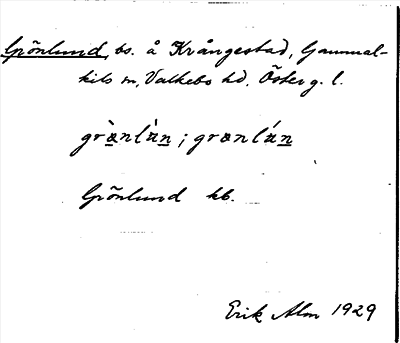 Grönlund, bs. å Krångestad, Gammal-
kils sn, Valkebo hd, Österg. l.
grö̀nlùn ; grönlún
Grönlund kb.
Erik Alm 1929